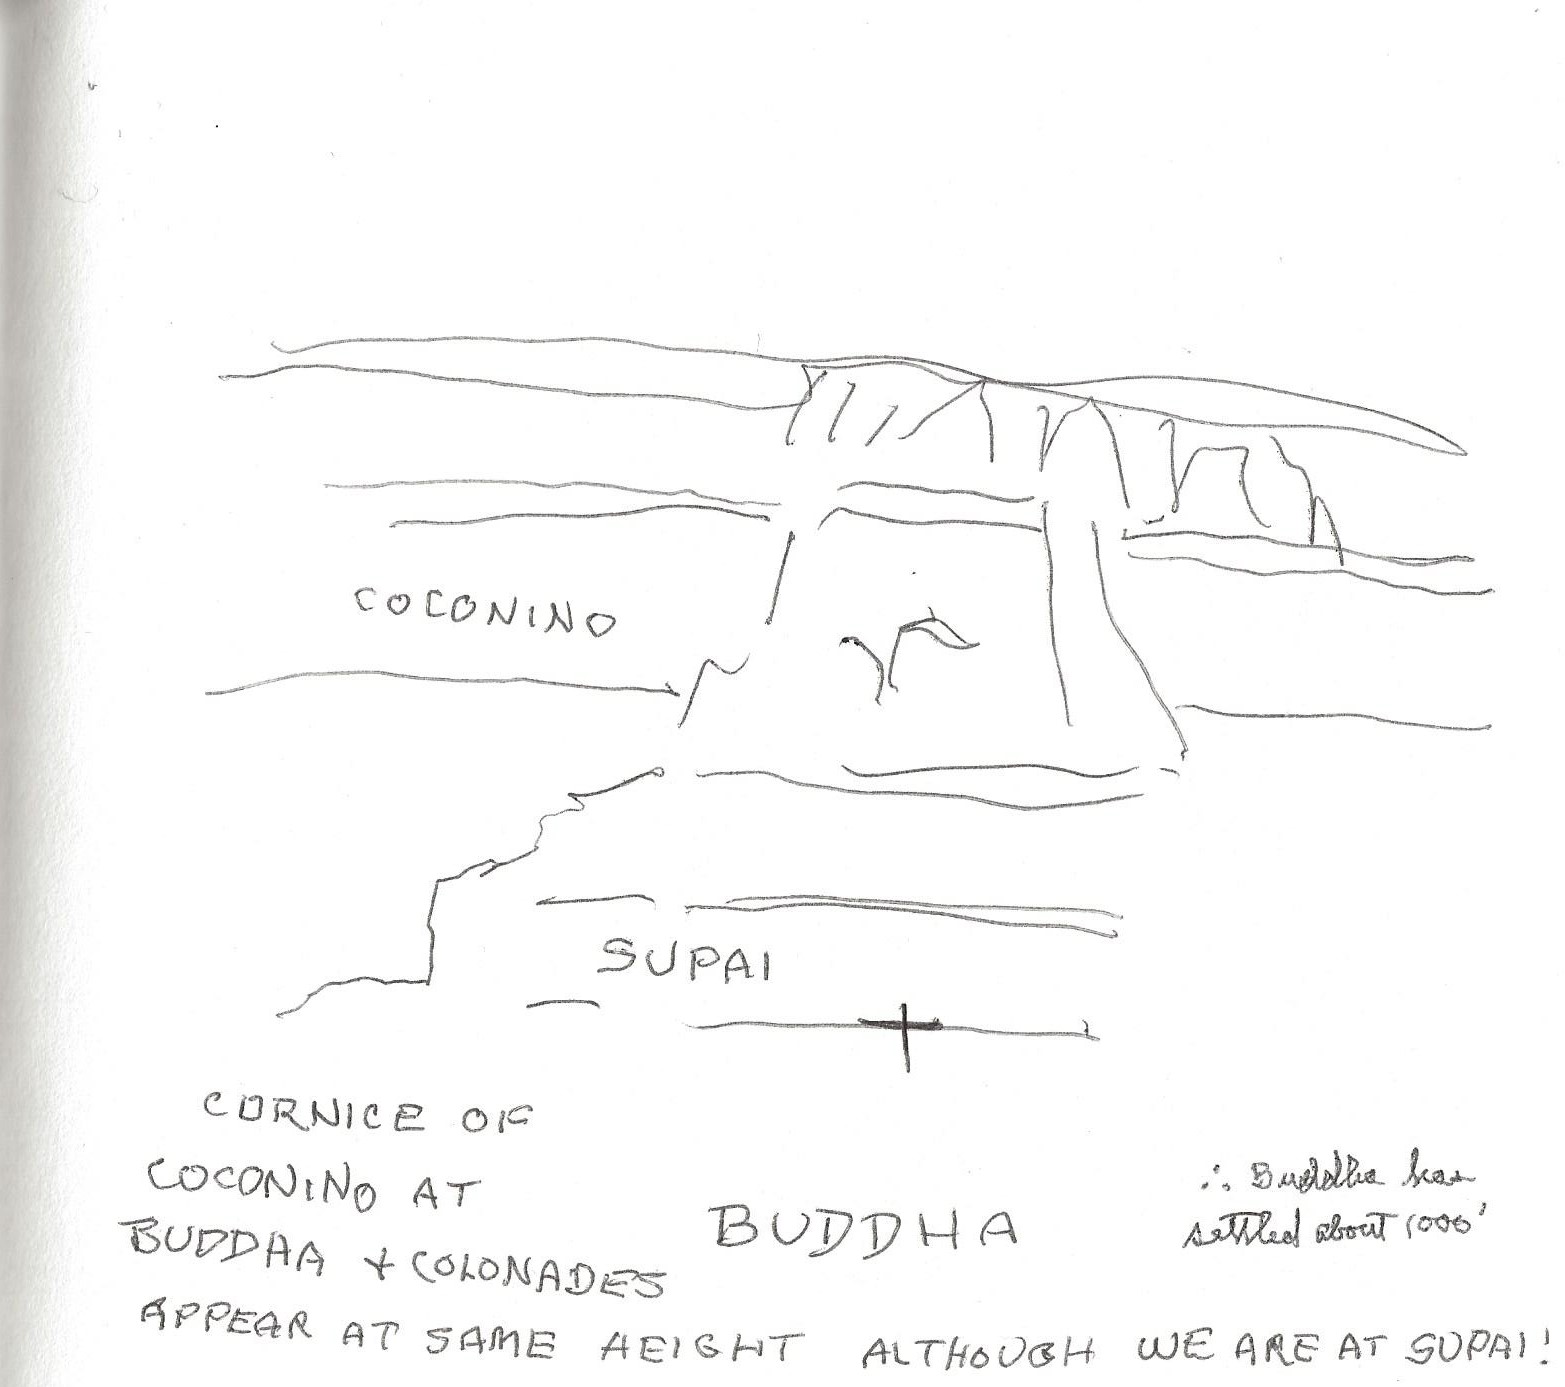 COCONINO
SUPAI
CORNICE OF
COCONINO AT
BUDDHA + COLONADES
APPEAR AT SAME HEIGHT ALTHOUGH WE ARE AT SUPAI!
BUDDHA
∴ Buddha has
settled about 1000'